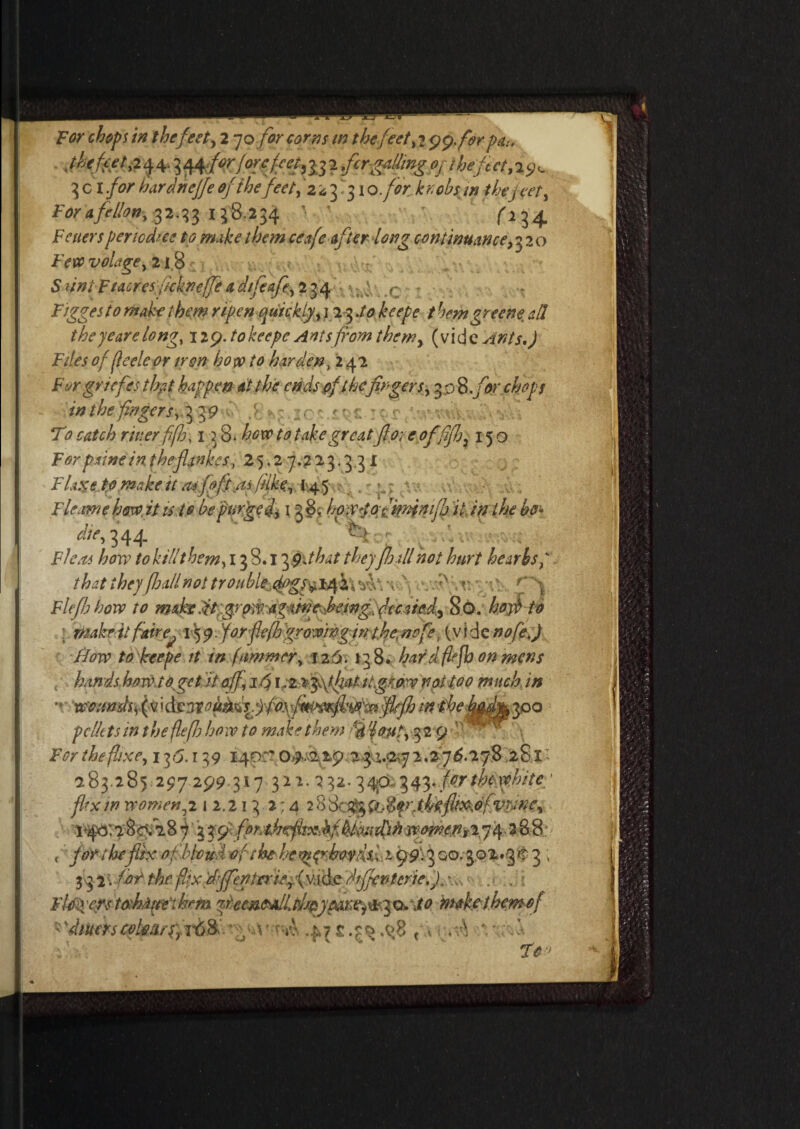 For chops in the feet, 270 for corns in the feet, 299. for pa
the feet, 244. 344 for fore feet, 332, for galling of the feet, 29
301. for hardnesse of the feet, 223. 310. for knobs in the feet,
For a fellon, 32.33 138.234 234
Feuers periodice to make them cease after long continuance, 320
Few volage, 218
Saint Fiacres sicknesse a disease, 234
Figges to make them ripen quickly, 123 to keepe them greene all
the yeare long, 129. to keepe Ants from them, (vide Ants.)
Files of steele or iron how to harden, 242
For griefes that happen at the ends of the fingers, 308. for chops
in the fingers, 339
To catch riuer fish, 138. how to take great store of fish, 150
For paine in the flankes, 25.27.223.331
Flaxe to make it as soft as silke, 145
Fleame how it is to be purged, 138. how to diminish it in the bo-
die, 344.
Fleas how to kill them, 138.139. that they shall not hurt hearbs,
that they shall not trouble dogs, 142
Flesh how to make it grow againe being decaied, 80. how to
make it faire, 159. for flesh growing in the nose, (vide nose.)
How to keepe it in summer, 126. 138. hard flesh on mens
hands how to get it off, 161. that it grow not too much in
wounds, (vide flesh in the 300
pellets in the flesh how to make them out, 329
For the flixe, 136.139 219 272.276.278.281
283.285 297 299.317 322. 332. 340. 343. for the white
flix in women, 212.213 2:4 288 for the flixe of vrine,
287 339 for the flixe of bloud in women, 274 288
for the flix of bloud of the hemerhoyds, 299.300.302. 3,
332. for the flix dyssenterie, (vide dyssenterie.)
Flowers to haue them greene all the yeare, 130. to make them of
diuers colours, 168
To